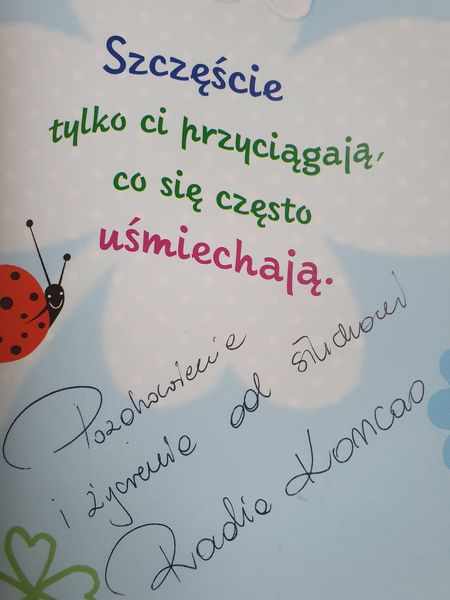 Szczęście
tylko ci przyciągają,
co się często
uśmiechają.
Pozdrowienie
i życzenia od słuchowi
Radia Koncao